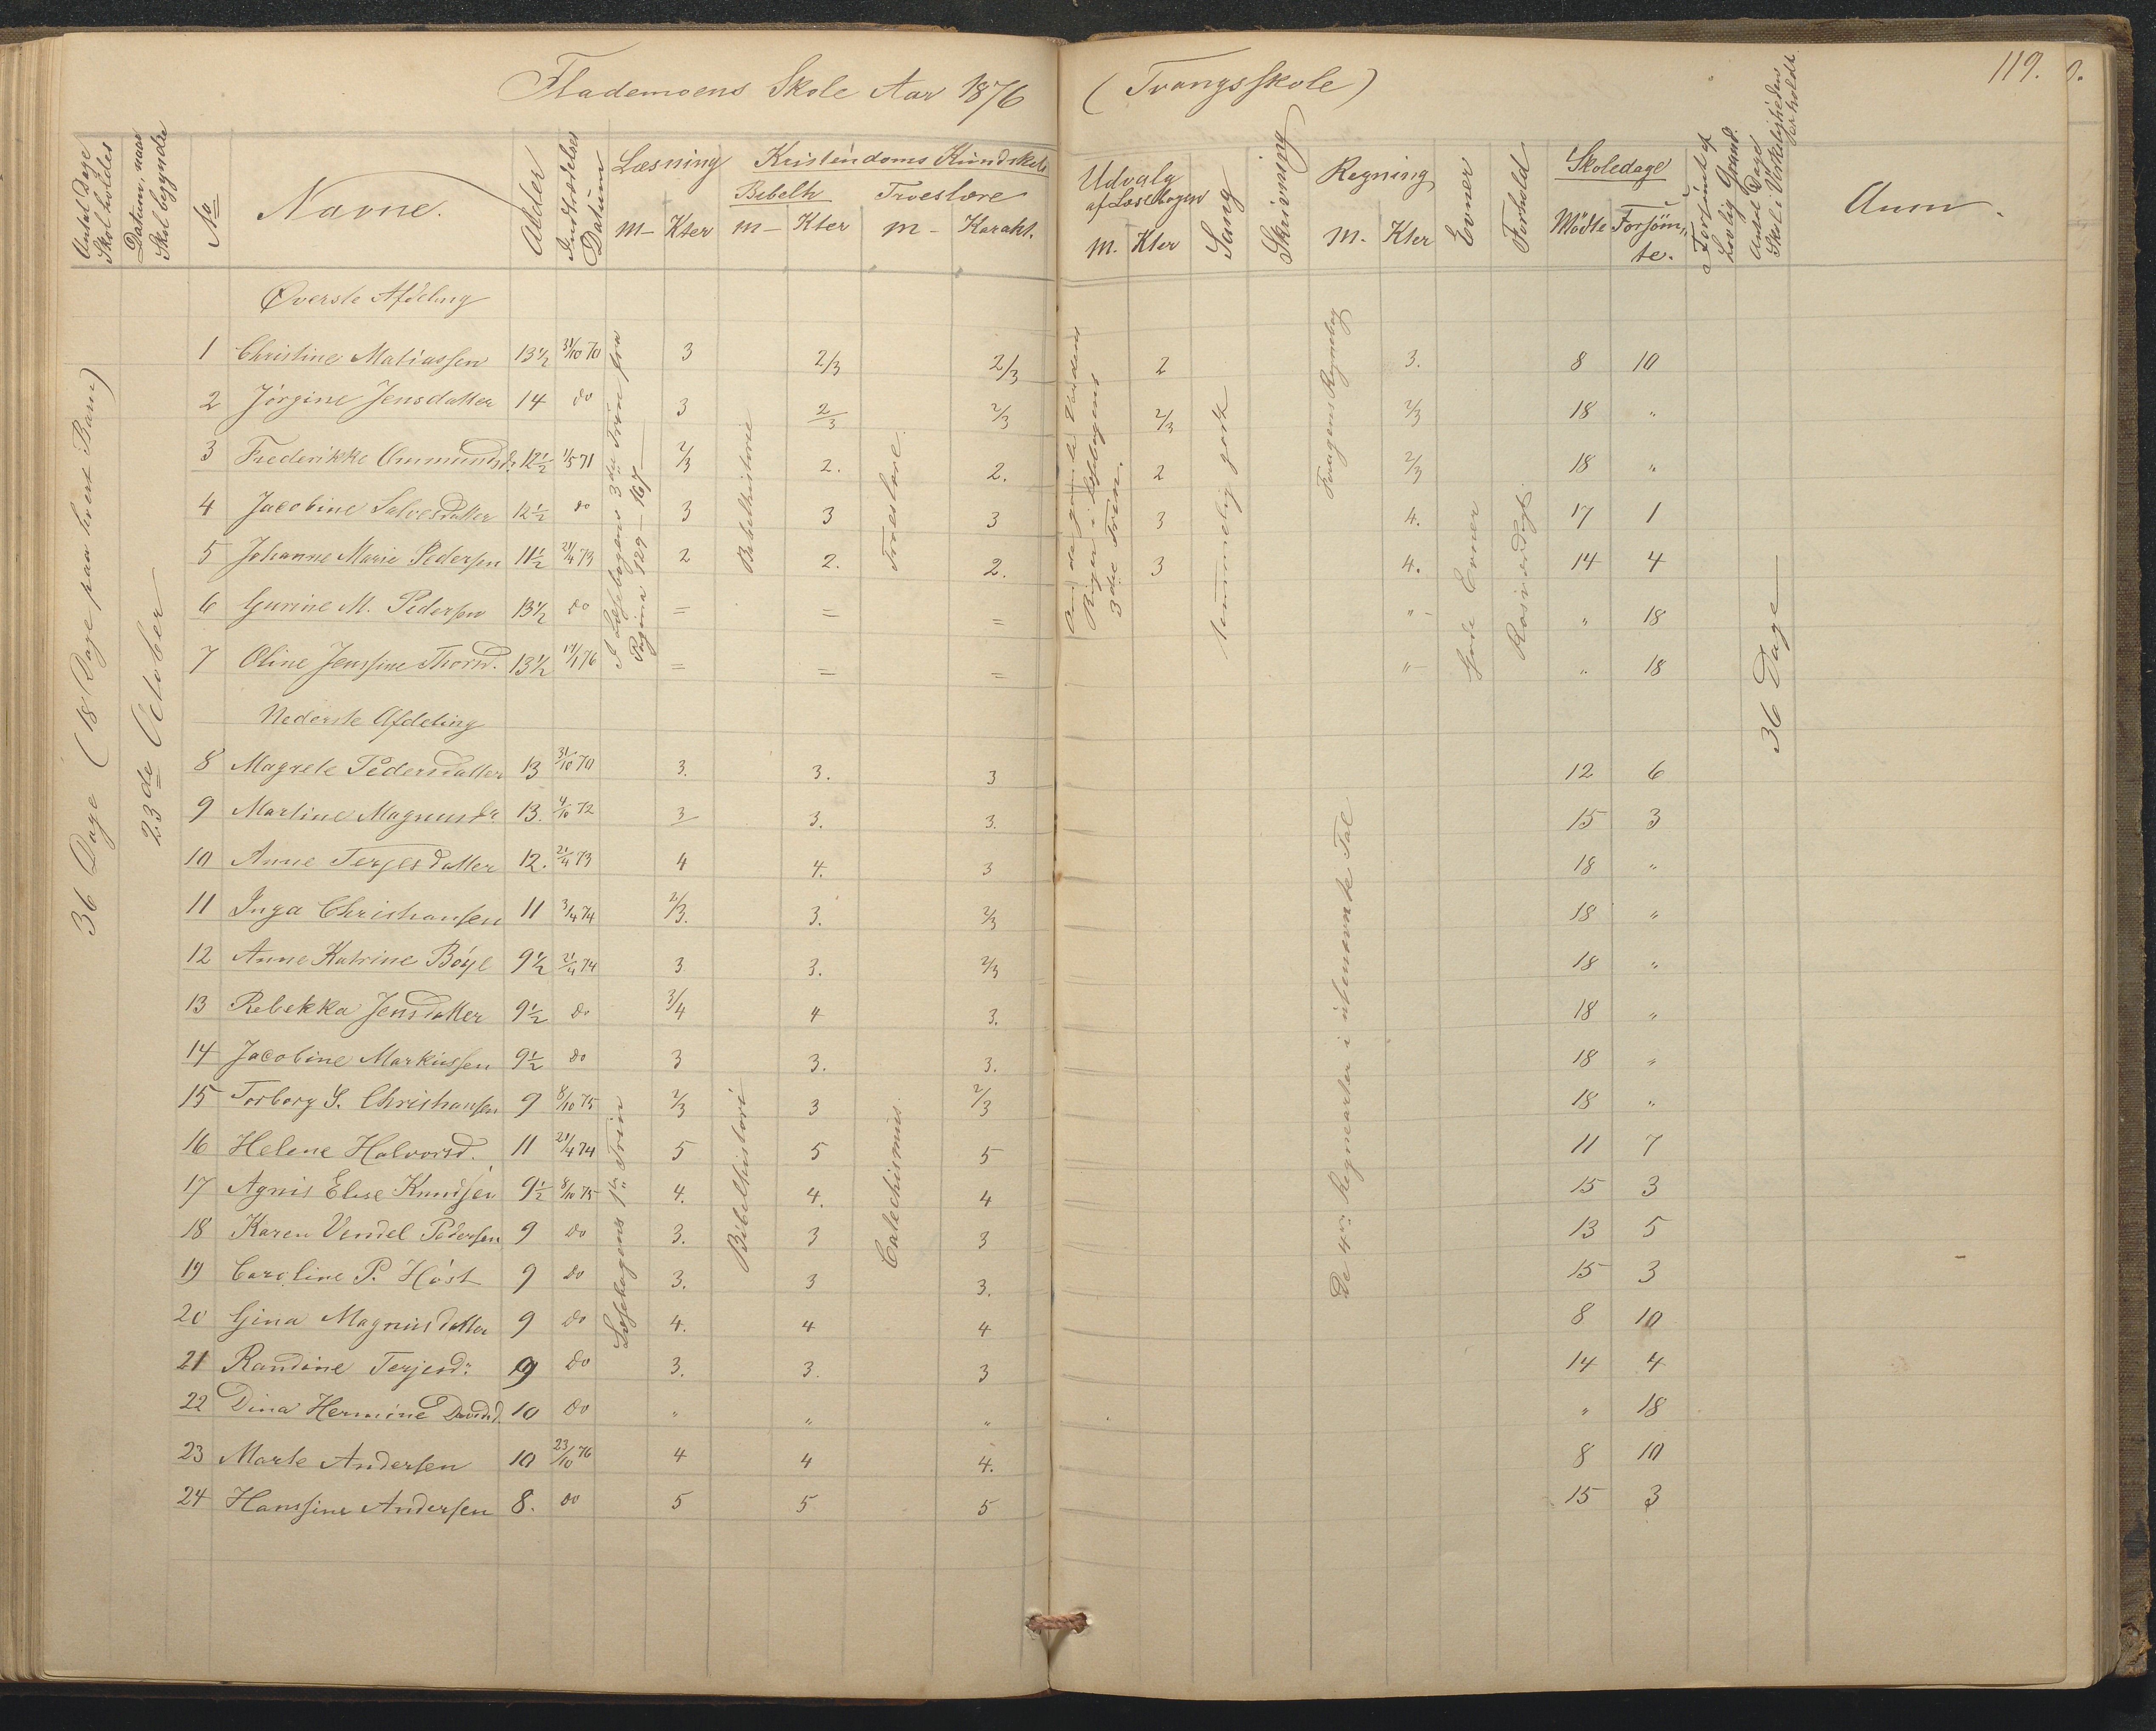 Flademoens Skole Aar 1876 (Tvangsskole) 119.
Antal Dage Skol holdes
Datum, naar Skol begyndte
No
Navne.
Alder
Indtrædelses Datum
Læsning
M- Kter
Kristendoms Kundskab
Bibelh
M- Kter
Troeslære
M- Karakt.
Udvalg af Læsebogen
M. Kter
Sang
Skrivning
Regning
M. Kter
Evner
Forhold
Skoledage
Mödte Forsöm,, te.
Forsömt af Lovlig Grund.
Antal Dage Skol i Virkeligheden er holdt
Anm.
36 Dage (18 Dage paa hvert Barn)
23de October
Øverste Afdeling
1 Christine Matiassen 13½ 31/10 70 3 2/3 2/3 2 3. 8 10
2 Jörgine Jensdatter 14 do 3 2/3 2/3 2/3 2/3 18 "
3 Frederikke Ommundsd. 12½ 1/5 71 2/3 2. 2. 2 2/3 18 "
4 Jacobine Salvesdatter 12½ do 3 3 3 3 4. 17 1
5 Johanne Marie Pedersen 11½ 21/4 73 2 2. 2. 3 4. 14 4
6 Gurine M. Pedersen 13½ do = = = " " 18
7 Oline Jenssine Thorsd. 13½ 17/1 76 = = = " " 18
I Læsebogens 3die Trin fra Pagina 129-167
Bibelhistorie
Troeslære.
3die Trin.
Nummelig godt
Gode Evner
Rosværdigt.
36 Dage
Nederste Afdeling
8 Magrete Pedersdatter 13 31/10 70 3. 3. 3 12 6
9 Martine Magnusdr 13. 4/10 72 3 3. 3. 15 3
10 Anne Terjesdatter 12. 21/4 73 4 4. 3 18 "
11 Inga Christiansen 11 3/4 74 2/3. 3. 2/3 18 "
12 Anne Katrine Böye 9½ 21/4 74 3 3. 2/3 18 "
13 Rebekka Jensdatter 9½ do 3/4 4 3. 18 "
14 Jacobine Markussen 9½ do 3 3. 3. 18 "
15 Torborg S. Christiansen 9 8/10 75 2/3 3 2/3 18 "
16 Helene Halvorsd. 11 21/4 74 5 5 5 11 7
17 Agnis Elise Knudsen 9½ 8/10 75 4. 4. 4 15 3
18 Karen Vendel Pedersen 9 do 3. 3 3 13 5
19 Caroline P. Höst 9 do 3. 3 3. 15 3
20 Gina Magnusdatter 9 do 4. 4 4 8 10
21 Randine Terjesd: 9 do 3. 3. 3 14 4
22 Dina Hermine Davidsd. 10 do " " " " 18
23 Marte Andersen 10 23/10 76 4 4 4. 8 10
24 Hanssine Andersen 8. do 5 5 5 15 3
Læsebogens 1ste Trin
Bibelhistorie
Catechismus
De 4re Regnearter i ubenævnte Tal